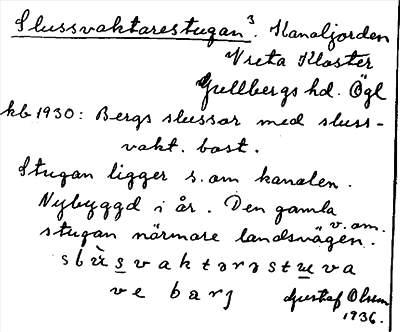 Slussvaktarestugan³. Kanaljorden
Vreta Kloster
Gullbergs hd. Ögl
kb 1930: Bergs slussar med sluss-
vakt. bost.
Stugan ligger s. om kanalen.
Nybyggd i år. Den gamla
stugan närmare landsvägen.
v. om.
slu̇̀s vaktərəstuva
ve barj
Gustaf Olsson
1936.